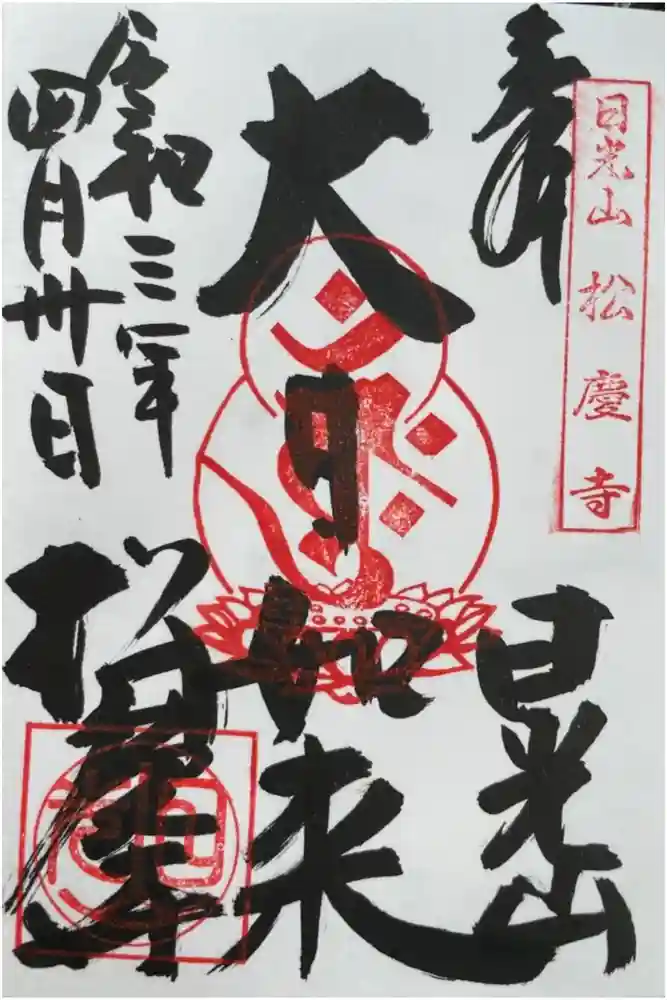 日光山 松慶寺
奉拝
日光山
大日如来
令和三年
四月卅日
松慶寺